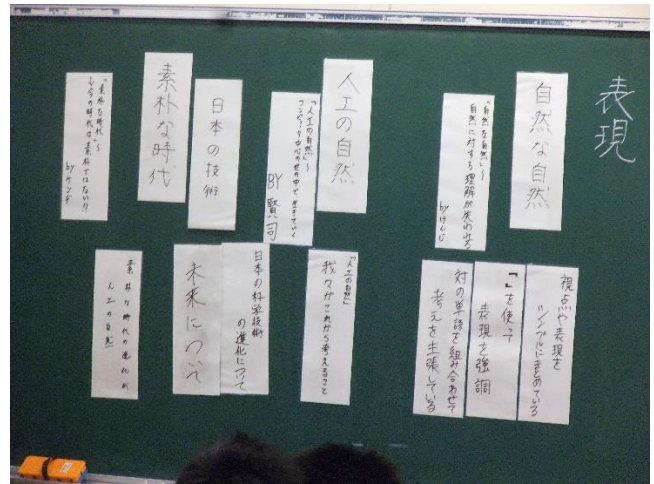 表現
自然な自然
「自然な自然」～
自然に対する理解が失われる
by けんじ
人工の自然
「人工の自然」～
コンピュータ中心の世の中で生きていく
BY 賢司
日本の技術
素朴な時代
「素朴な時代」～
時代は素朴ではない!!
by ケンヂ
視点や表現を
シンプルにまとめている
「」を使って
表現を強調
対の単語を組み合わせて
考えを主張している
「人工の自然」
我々がこれから考えること
日本の科学技術
の進化について
未来について
素朴な時代の進化が
人工の自然